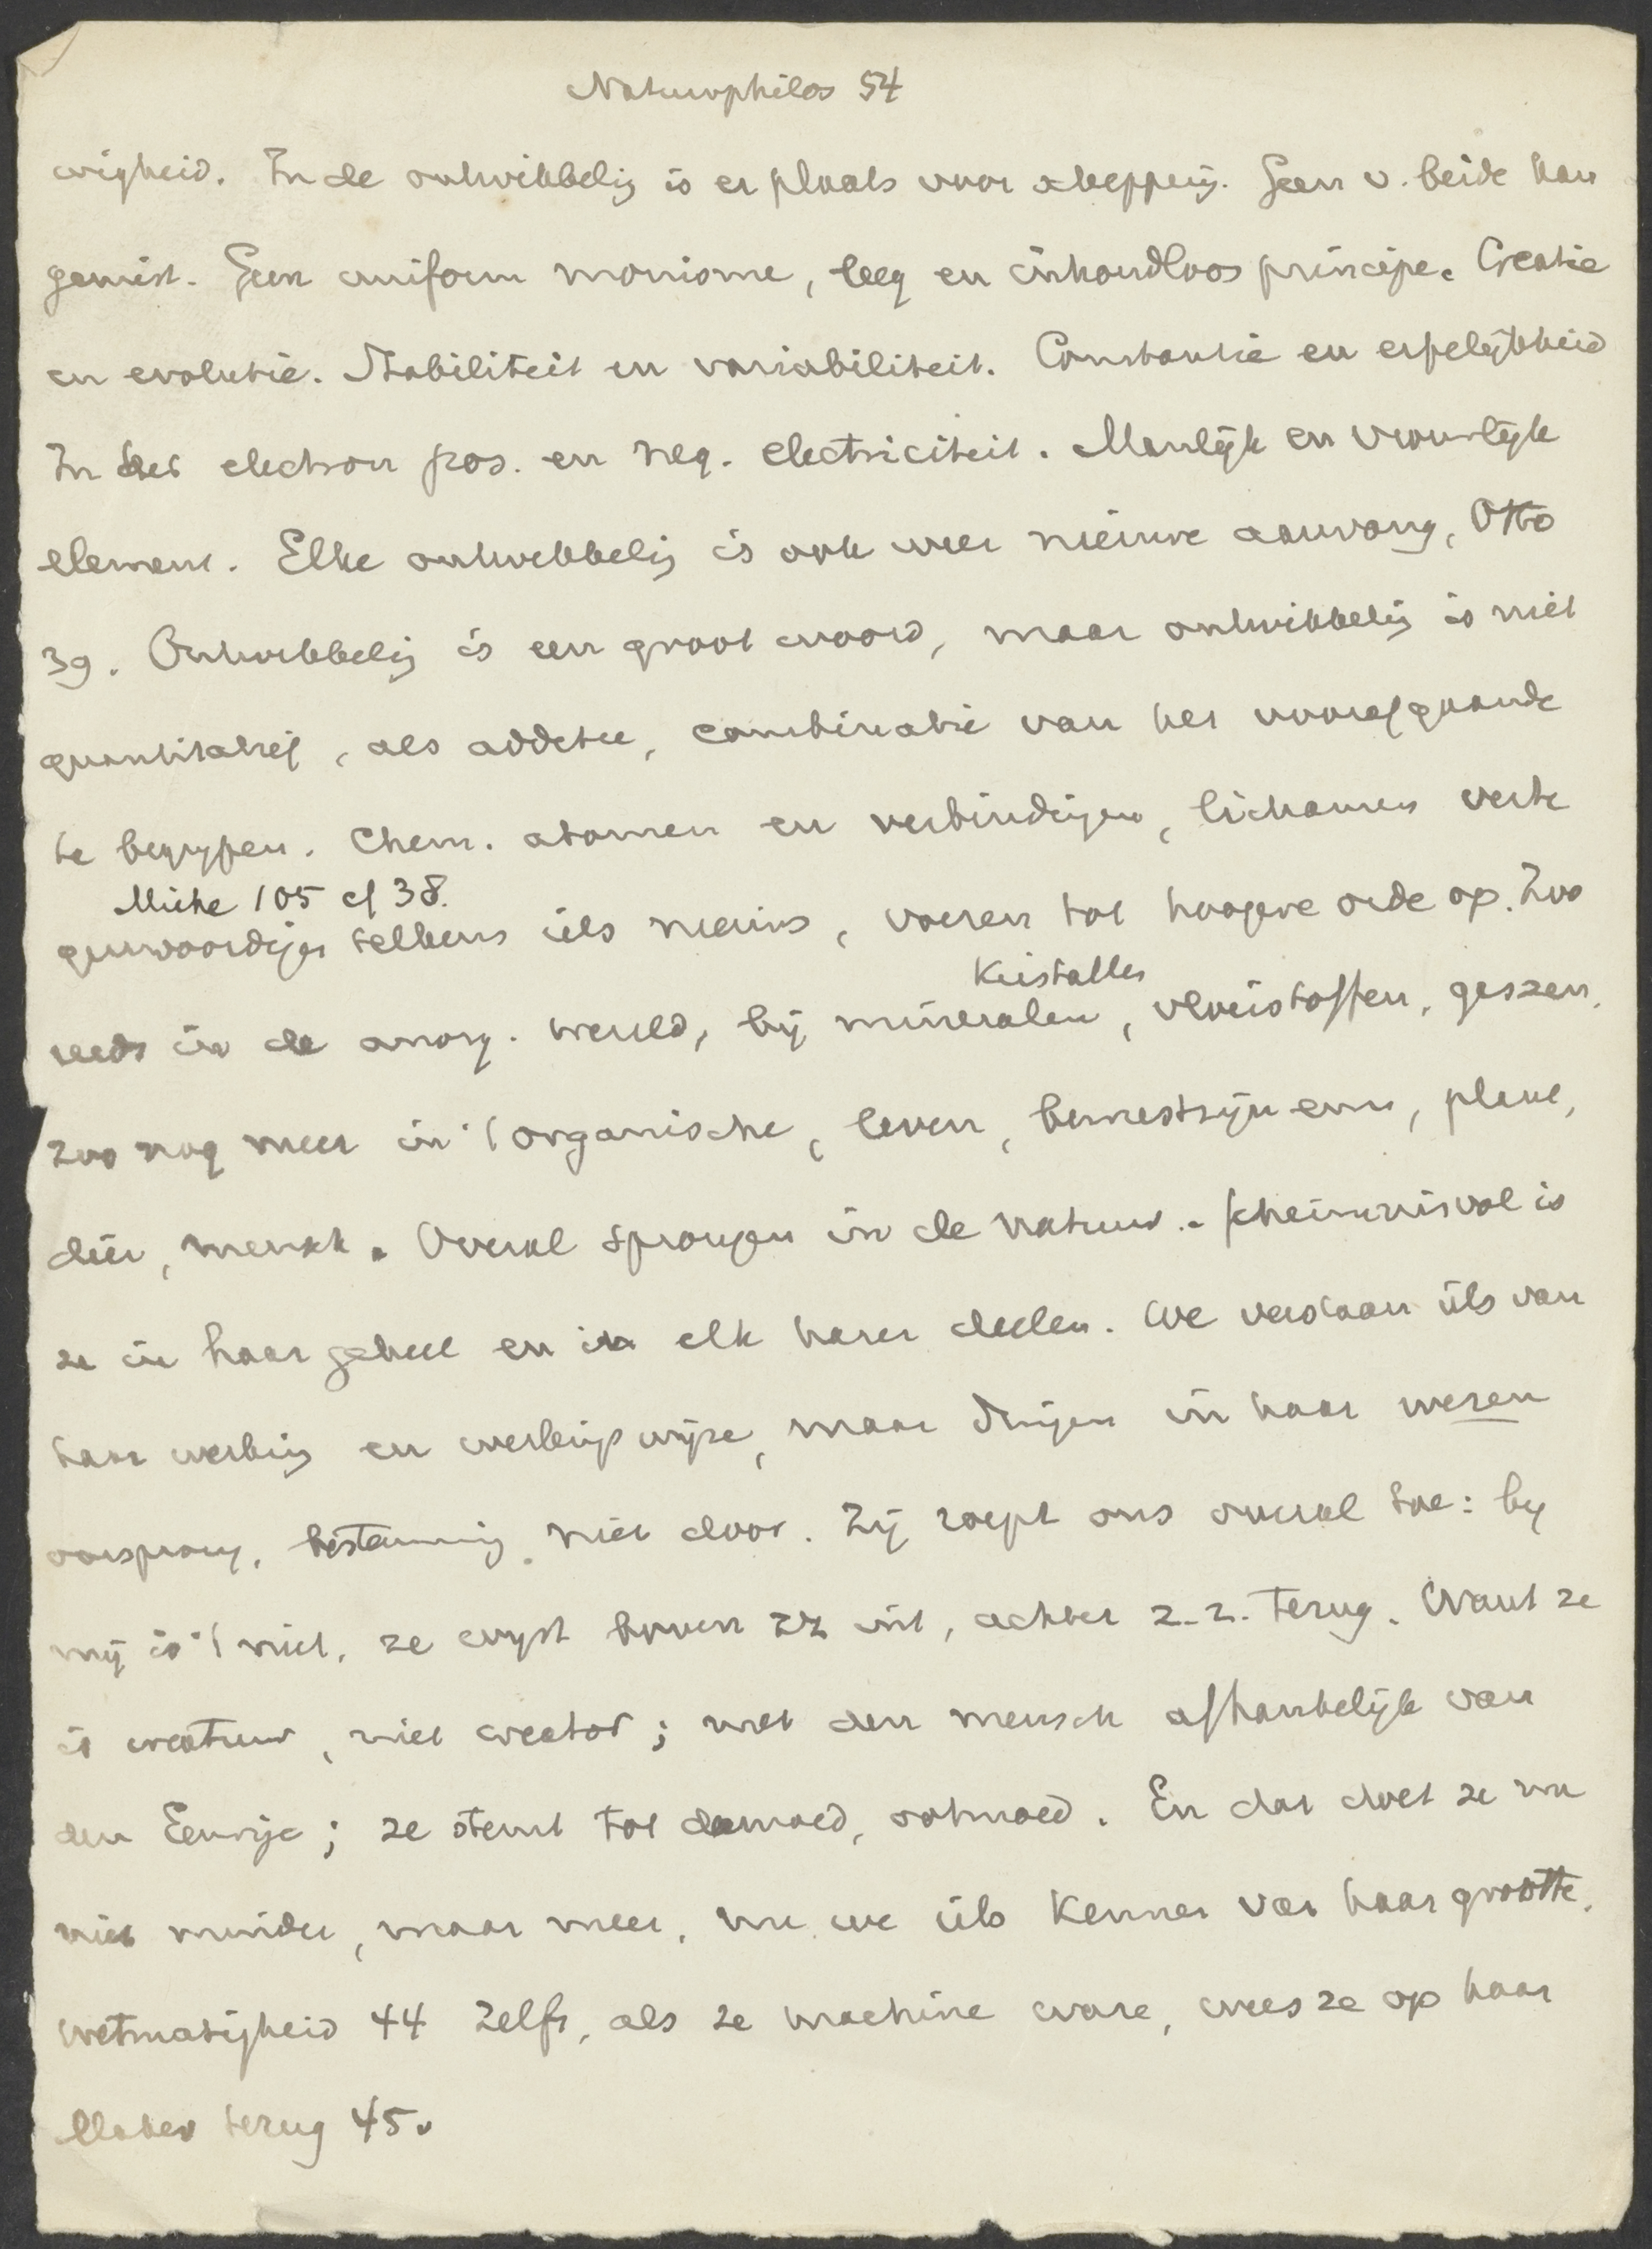 Naturphilos 54
wigheid. In de ontwikkelig is er plaats voor schepping. Geen v. beide kan
gemist. Geen uniform monisme, leeg en inhoudloos principe. Creatie
en evolutie. Stabiliteit en variabiliteit. Constantie en erfelijkheid
In het electron pos. en neg. electriciteit. Manlijk en vrouwlijk
element. Elke ontwikkelig is ook weer nieuwe aanvang, Otto
39. Ontwikkelig is een groot woord, maar ontwikkelig is niet
quantitatief, als additie, combinatie van het voorafgaande
te begrypen. Chem. atomen en verbindigen, lichamen verte
Miche 105 cf 38.
genwoordigen telkens iets nieuws, voeren tot hoogere orde op. Zoo
Kristallen
reeds in de anorg. wereld, bij mineralen, vloeistoffen, gassen,
zoo nog meer in 't organische, leven, bewustzijn enn, plant,
dier, mensch. Overal sprongen in de natuur. Geheimnisvol is
ze in haar geheel en in elk harer deelen. We verstaan iets van
haar werking en werkingswijze, maar dringen in haar wezen
oorsprong, bestemming niet door. Zij roept ons overal toe: by
mij is 't niet, ze wyst boven zz uit, achter z.z. terug. Want ze
is creatuur, niet creator; met den mensch afhankelijk van
den Eeuwige; ze stemt tot demoed, ootmoed. En dat doet ze nu
niet minder, maar meer, nu we iets kennen van haar grootte,
wetmatigheid 44 Zelfs, als ze machine ware, wees ze op haar
Maker terug 45.